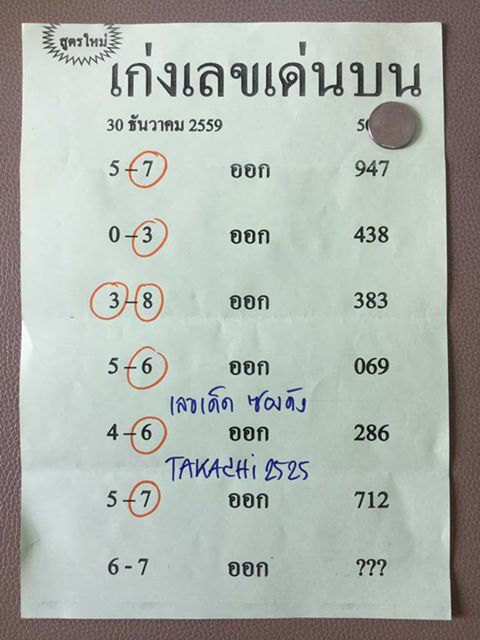 สูตรใหม่
เก่งเลขเด่นบน
30 ธันวาคม 2559
5-7 ออก 947
0-3 ออก 438
3-8 ออก 383
5-6 ออก 069
เลขเด็ด ซองดัง
4-6 ออก 286
TAKACHi 2525
5-7 ออก 712
6-7 ออก ???